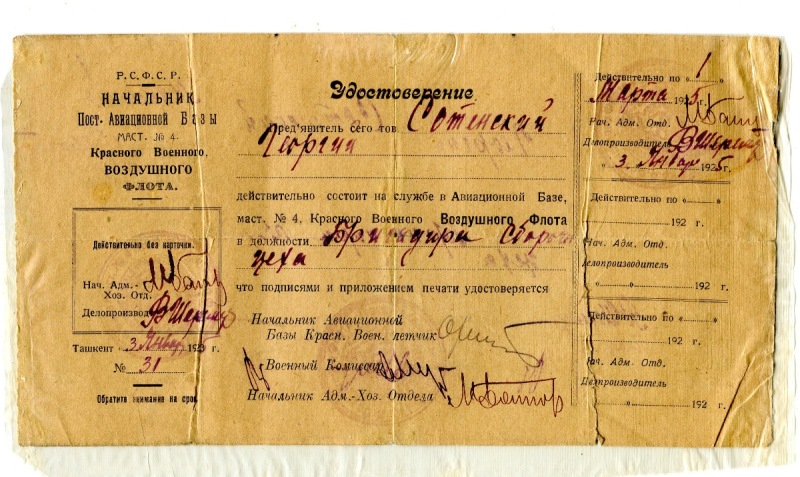 Р.С.Ф.С.Р.
НАЧАЛЬНИК
Пост. Авиационной Базы
МАСТ. № 4.
Красного Военного
ВОЗДУШНОГО
ФЛОТА.
Действительно без карточки.
Нач. Адм.-
Хоз. Отд.
Делопроизвод
Ташкент „3" Январ 192
№ 31
Обратите внимание на срок
Удостоверение
Пред'явитель сего тов Сотенский
Георгий
действительно состоит на службе в Авиационной Базе,
маст. № 4, Красного Военного Воздушного Флота
в должности Бригадира Сбороч
цеха
что подписями и приложением печати удостоверяется
Начальник Авиационной
Базы Красн. Воен. летчик
Военный Комиссар
Начальник Адм.-Хоз. Отдела
Действительно по «1»
Марта 1925 г.
Нач. Адм. Отд.
Делопроизводитель
3 Январ 1925 г.
Действительно по « »
192 г.
Нач. Адм. Отд.
Делопроизводитель
« » 192 г.
Действительно по « »
192 г.
Нач. Адм. Отд.
Делпроизводитель
« » 192 г.